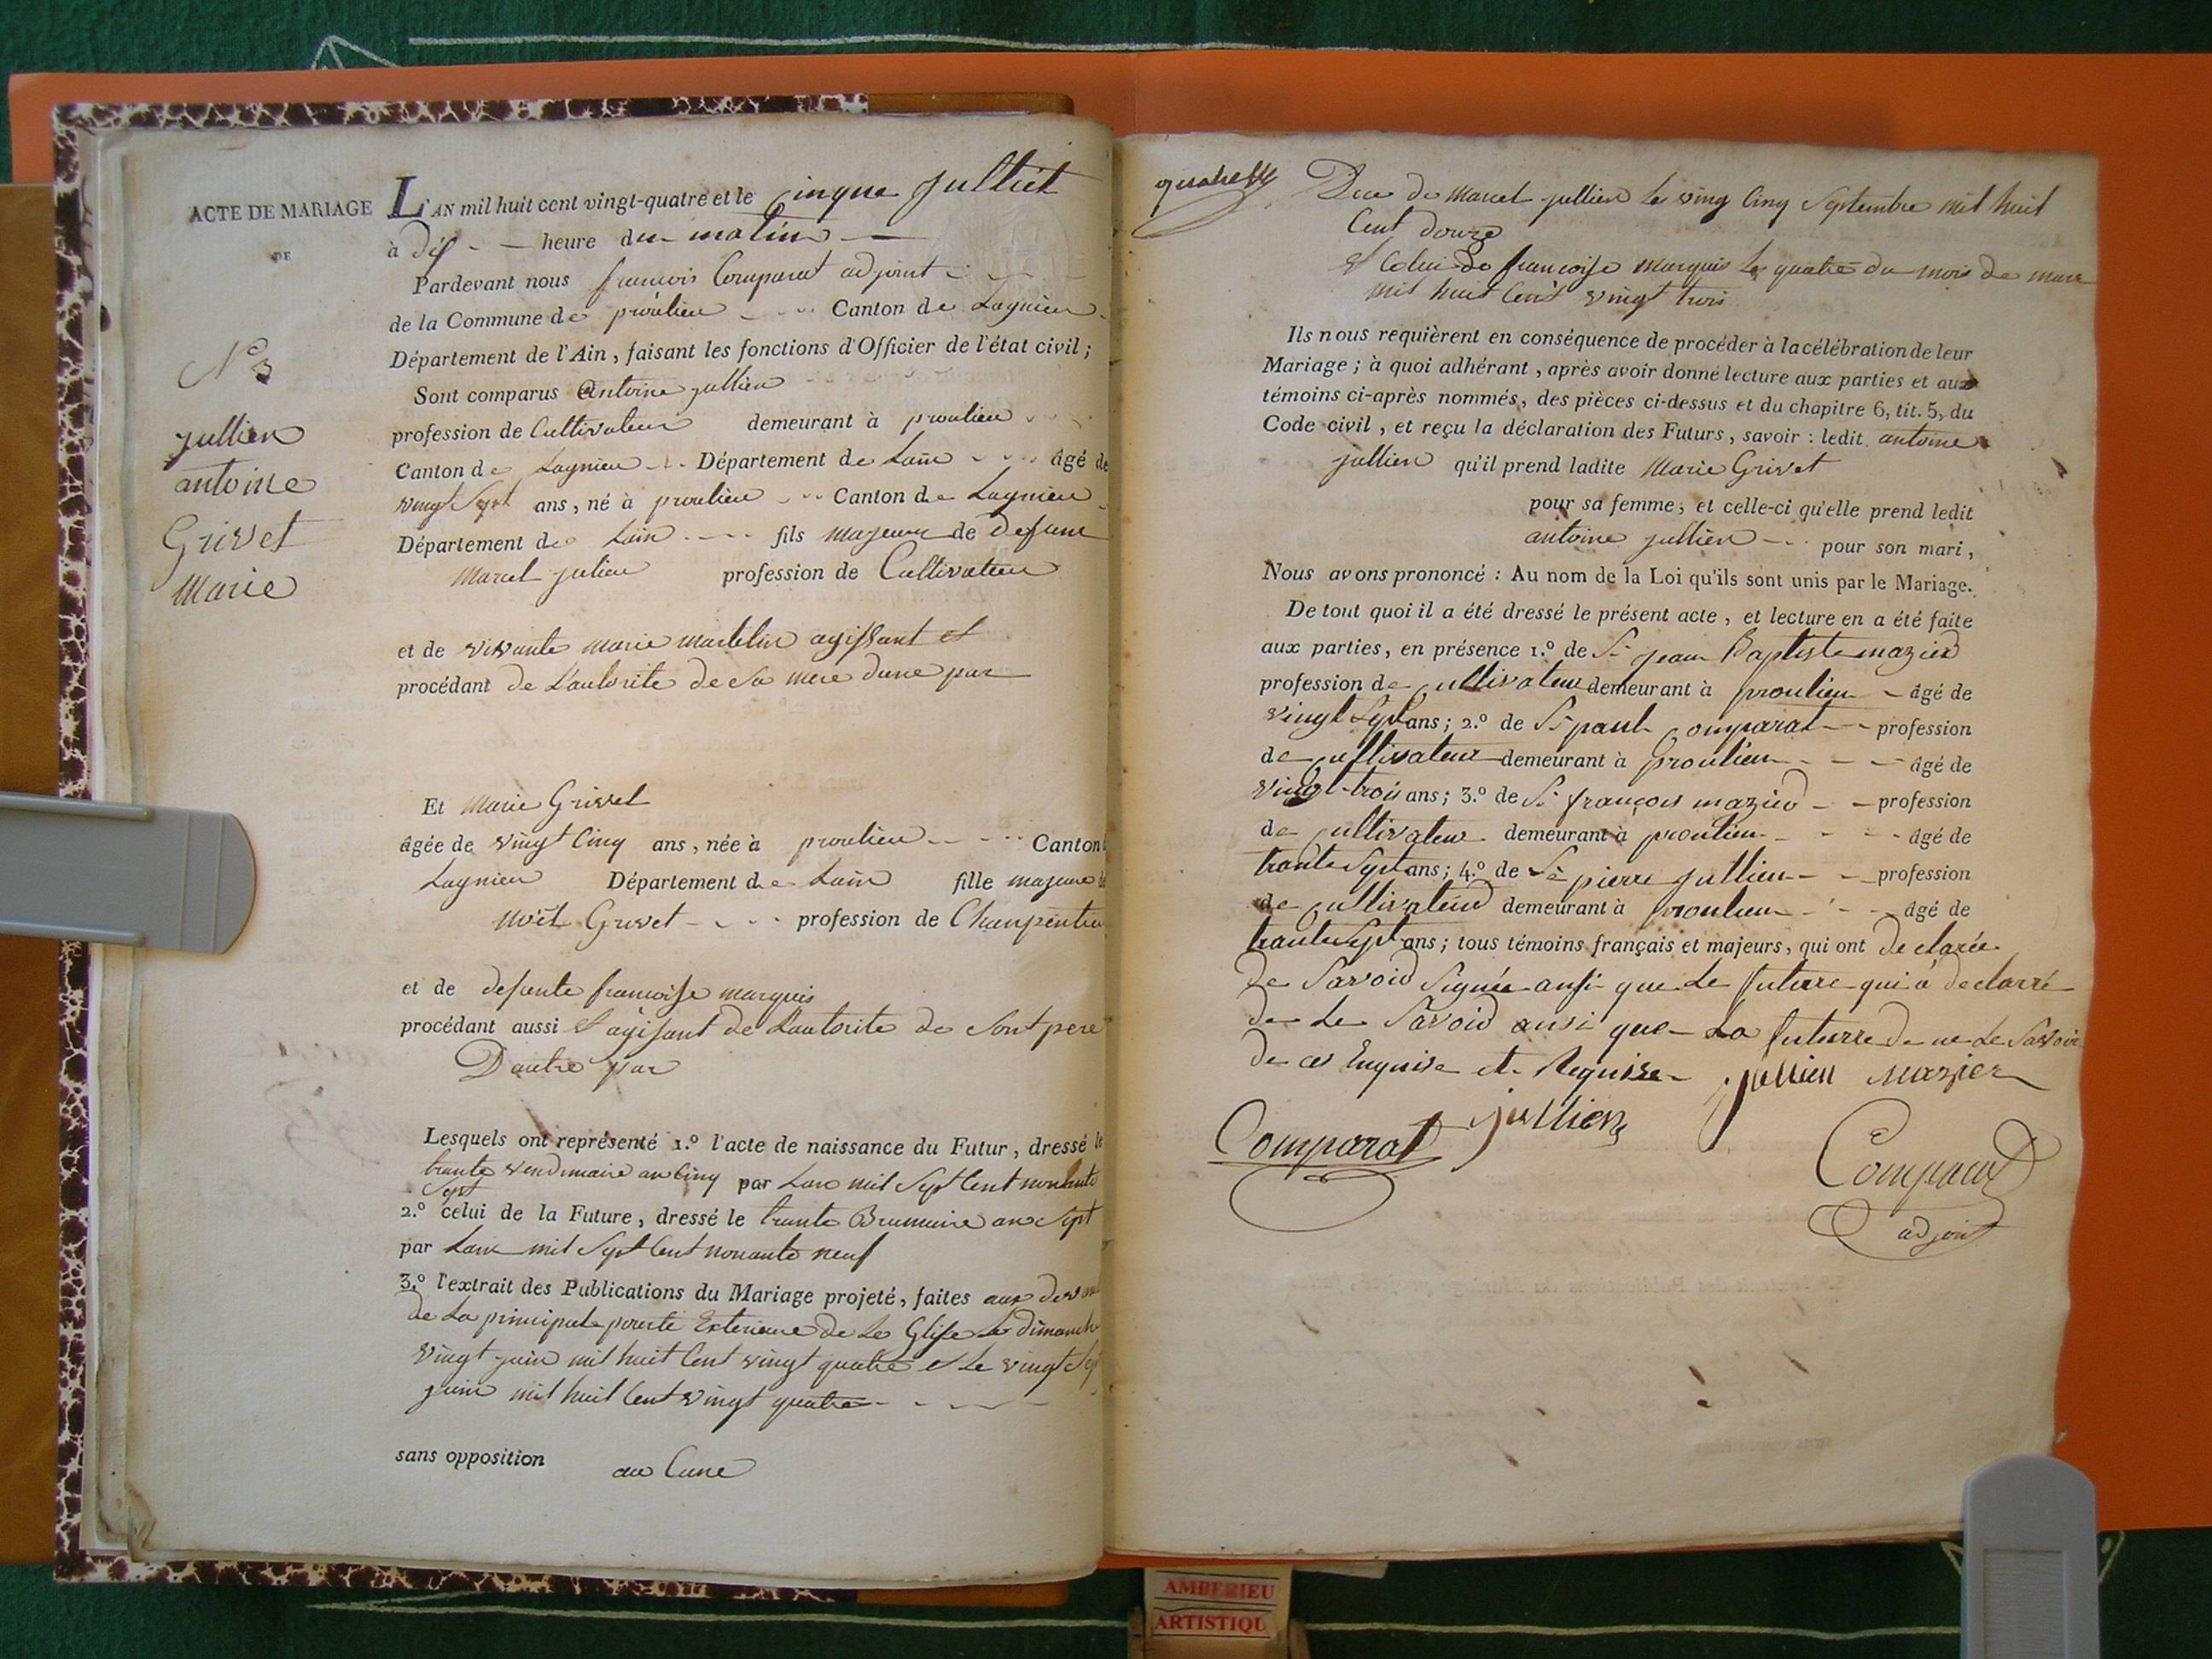 ACTE DE MARIAGE
DE
N° 3
jullien
antoine
Grivet
Marie
L'AN mil huit cent vingt-quatre et le cinque Julliet
à dis - - heure du matin -
Pardevant nous francois Comparat adjoint
de la Commune de proulieu - - Canton de Lagnieu
Département de l'Ain, faisant les fonctions d'Officier de l'état civil;
Sont comparus Antoine jullien
profession de Cultivateur demeurant à proulieu
Canton de Lagnieu - - Département de Lain - - - âgé de
vingt Sept ans, né à proulieu - - Canton de Lagnieu
Département de Lain - - - fils majeur de defunt
Marcel julien profession de Cultivateur
et de vivante marie martelin agissant et
procédant de Lautorite de Sa mere dune par
Et Marie Grivet
âgée de vingt Cinq ans, née à proulieu - - - Canton
Lagnieu Département de Lain fille majeure de
Noël Grivet - - - profession de Charpentier
et de defunte francoise marquis
procédant aussi et agisant de Lautorite de Sont pere
Dautre par
Lesquels ont représenté 1.° l'acte de naissance du Futur, dressé le
trante vendimaire an Cinq par Lan mil Sept Cent nonante
Sept
2.° celui de la Future, dressé le trante Brumaire an Sept
par Lan mil Sept Cent nonante neuf
3.° l'extrait des Publications du Mariage projeté, faites aux devant
de La principale porte Exterieure de Le Glise Le dimanche
vingt juin mil huit Cent vingt quatre et Le vingt Sept
juin mil huit Cent vingt quatre - - - -
sans opposition au Cune
Dece de Marcel jullien Le ving Cinq Septembre mil huit
Cent douze
et Celui de francoise marquis Le quatre du mois de mars
mil huit Cent vingt trois
Ils nous requièrent en conséquence de procéder à la célébration de leur
Mariage; à quoi adhérant, après avoir donné lecture aux parties et aux
témoins ci-après nommés, des pièces ci-dessus et du chapitre 6, tit. 5, du
Code civil, et reçu la déclaration des Futurs, savoir : ledit antoine
jullien qu'il prend ladite Marie Grivet
pour sa femme; et celle-ci qu'elle prend ledit
antoine jullien - - pour son mari,
Nous avons prononcé : Au nom de la Loi qu'ils sont unis par le Mariage.
De tout quoi il a été dressé le présent acte, et lecture en a été faite
aux parties, en présence 1.° de Sr jean Baptiste mazier
profession de cultivateur demeurant à proulieu - âgé de
vingt Sept ans; 2.° de Sr paul Comparat - - profession
de cultivateur demeurant à proulieu - - - âgé de
vingt-trois ans; 3.° de Sr françois mazier - - profession
de cultivateur demeurant à proulieu - - - âgé de
trante Sept ans; 4.° de Sr pierre jullien - - profession
de cultivateur demeurant à proulieu - - - âgé de
trante Sept ans; tous témoins français et majeurs, qui ont declarée
de Savoir Signée ansi que Le future qui a declarré
de Le Savoir ansi que La futurre de ne Le Savoir
de ce Enquise et Requise jullien Mazier
Comparat jullien
Comparat
adjoint
AMBERIEU
ARTISTIQU